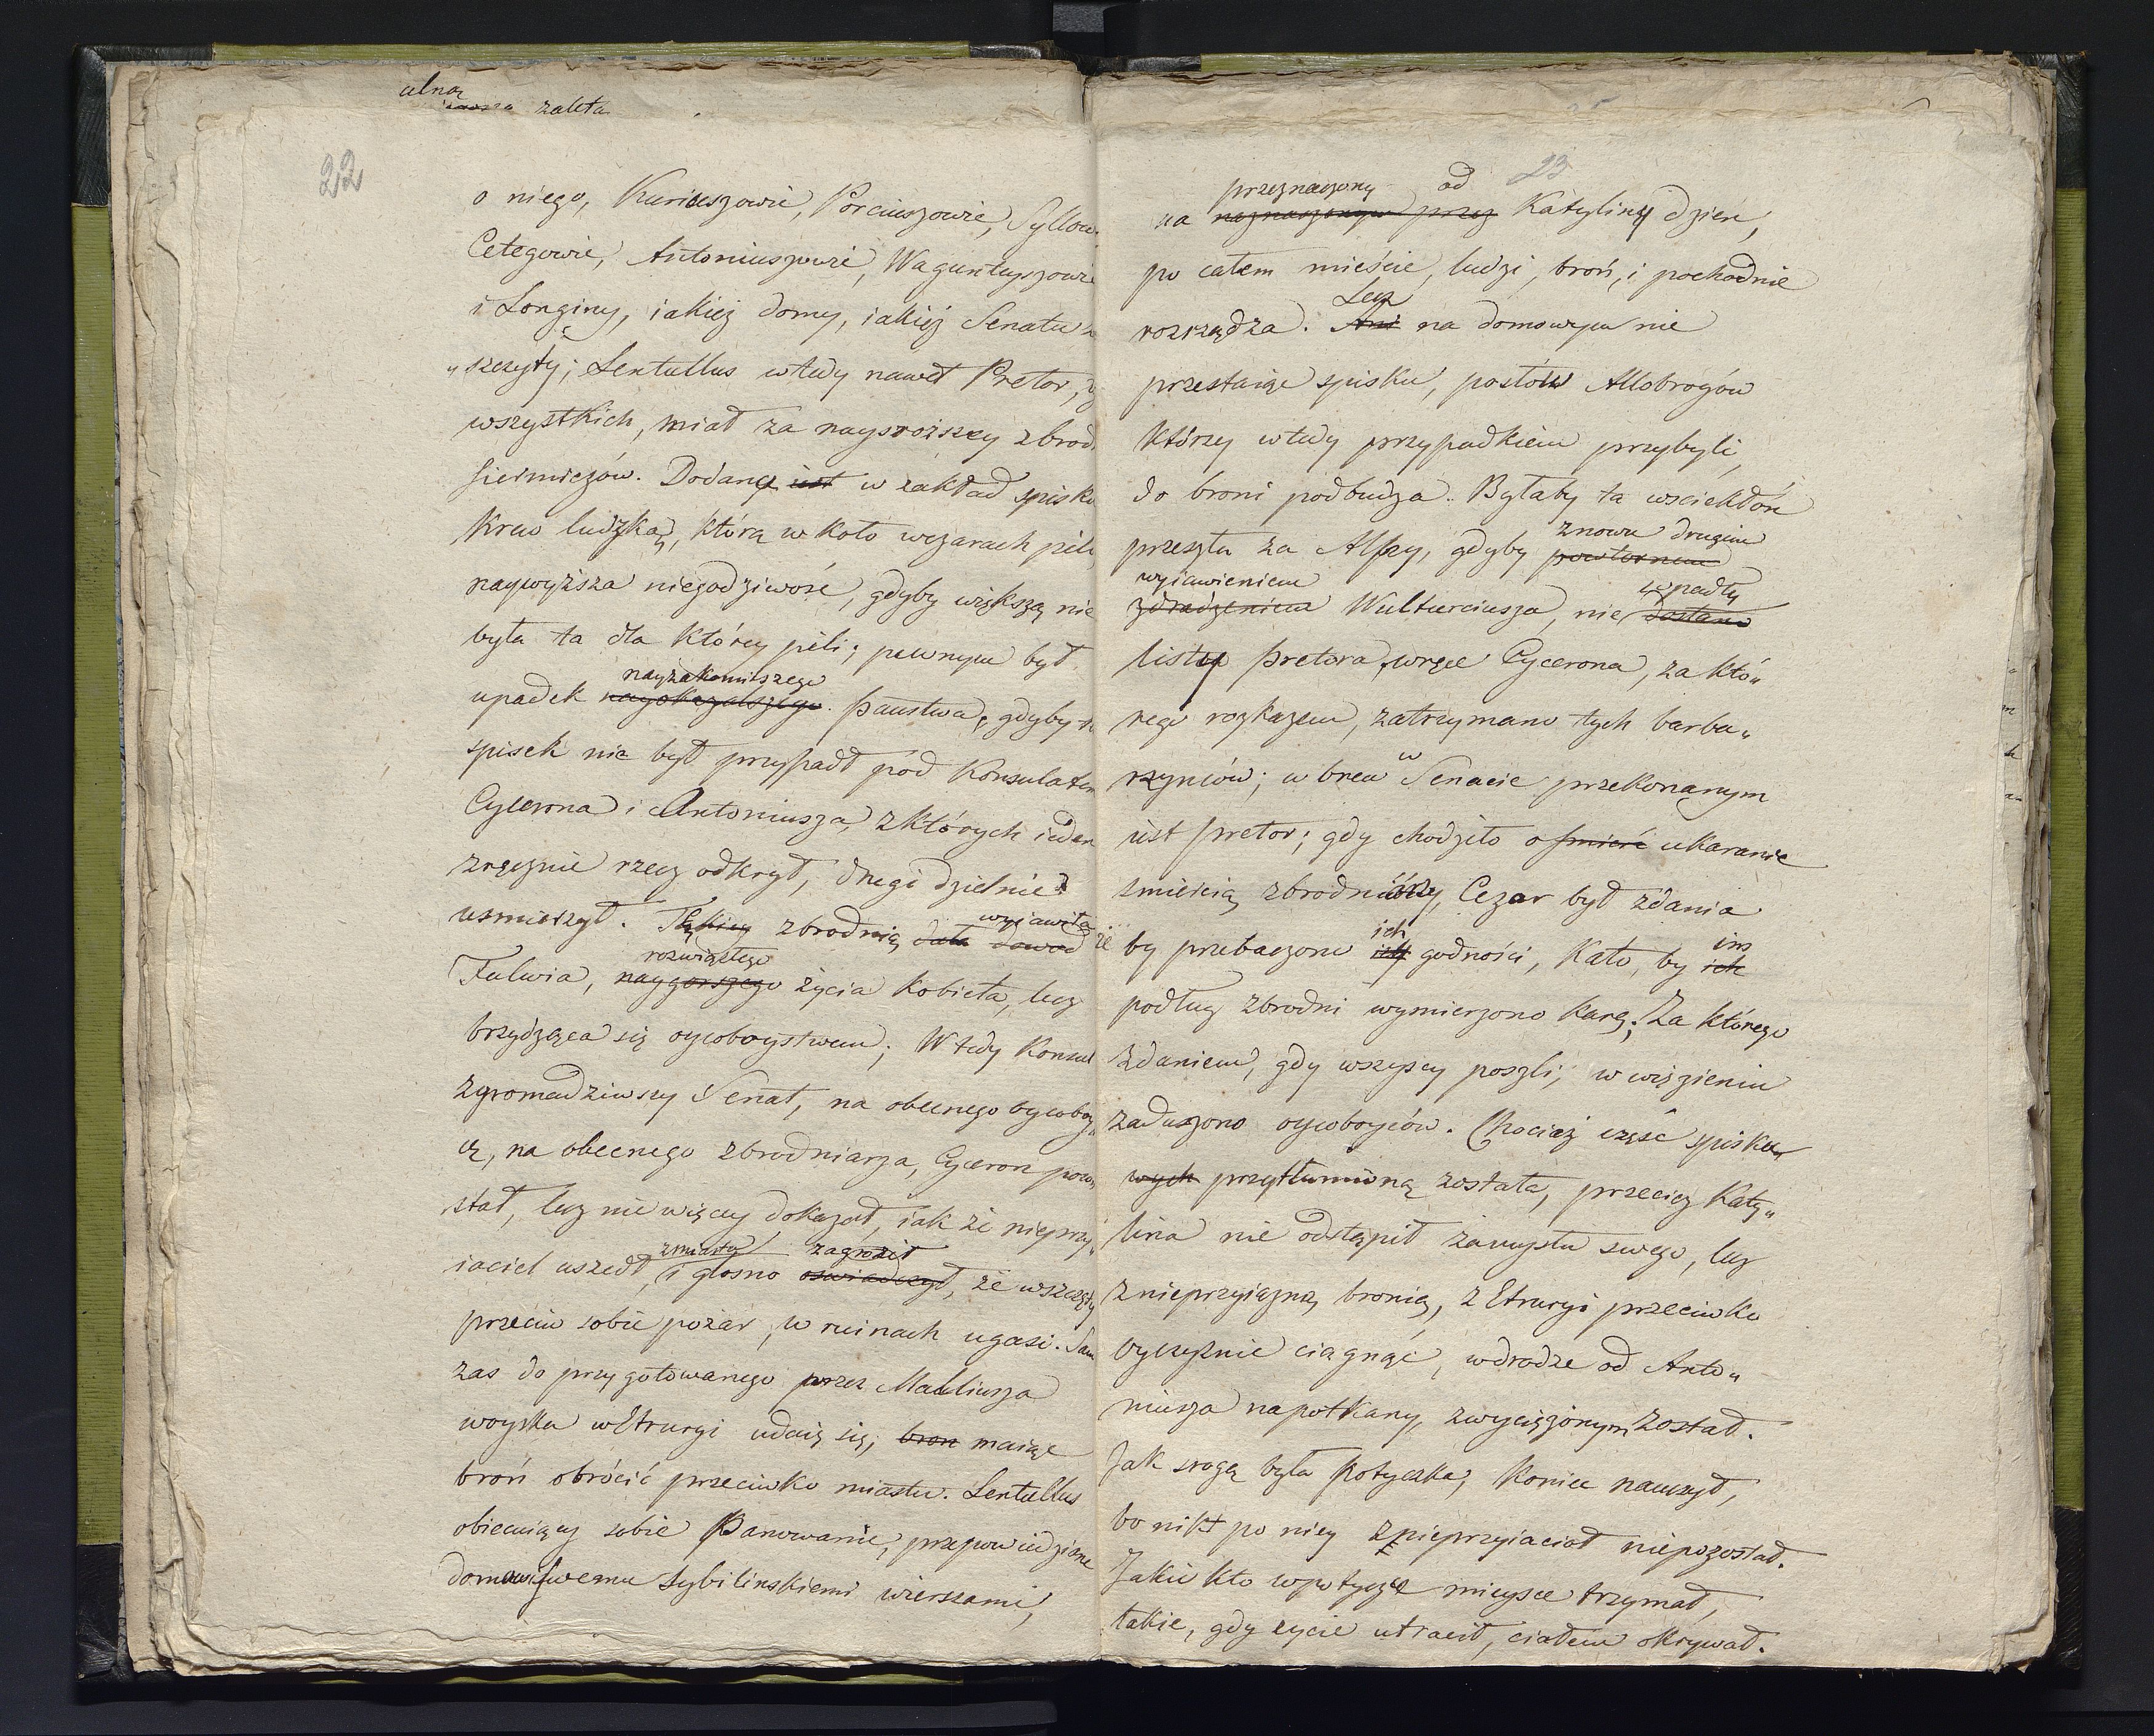 ulną
zaleta
22
o niego, Kuriuszowie, Porciuszowie, Syllow
Cetegowie, Antoniuszowie, Waguntyszowie
i Longiny, iakież domy, iakież Senatu
„szczyty; Lentullus wtedy nawet Pretor,
wszystkich, miał za naysroższey zbrod
sieimieżów. Dodaną iest w zakład spisko
krew ludzką, którą w koło wczarach pili,
naywyższa niegodziwość, gdyby większą nie
była ta dla którey pili; pewnym był
nayznakomitszego
upadek nayokazalszego państwa, gdyby
spisek nie był przypadł pod Konsulatem
Cycerona i Antoniusza, z których ieden
zręcznie rzecz odkrył, drugi dzielnie
wyiawiła
usmierzył. Tękiey zbrodnię dała dowod że
rozwiązłego
Fulwia, naygorszego życia kobieta, lecz
brzydząca się oycoboystwem; Wtedy Konsul
zgromadziwszy Senat, na obecnego oycoboy„
cę, na obecnego zbrodniarza, Cyceron pow
stał, lecz nie więcey dokazał, iak że nieprzy„
z miasta zagroził
iaciel uszedł, i głosno oswiadczył, że wszczęty
przeciw sobie pożar, w ruinach ugasi. Sam
zas do przygotowanego przez Malliusza
woyska w Etruryi udaie się, bron maiąc
broń obrócić przeciwko miastu. Lentullus
obiecuiący sobie Panowanie, przepowiedziane
domowi swemu Sybilinskiemi wierszami,
23
przeznaczony od
na naznaczonym przez Katyliny dzien,
po całem mieście, ludzi, broń, i pochodnie
Lecz
rozrządza. Ani na domowym nie
przestaiąc spisku, posłów Allobrogów
którzy wtedy przypadkiem przybyli,
do broni podbudza. Byłaby ta wsciekłość
znowu drugim
przeszła za Alpy, gdyby powtornem
wyiawieniem wpadły
zdradzeniem Wulturciusza, nie dostano
listy pretora, w ręce Cycerona, za któ„
rego rozkazem, zatrzymano tych barba„
w
rzyńców; w brew Senacie przekonanym
iest pretor; gdy chodziło o smierć ukaranie
smiercią zbrodniarzy, Cezar był zdania
ich im
by przebaczono ich godności, Kato, by ich
podług zbrodni wymierzono karę; Za którego
zdaniem, gdy wszyscy poszli, w więzieniu
zaduszono oycoboyców. Chociaż część spisku
wych przytłumioną została, przecież Katy„
lina nie odstąpił zamysłu swego, lecz
z nieprzyiazną bronią, z Etruryi przeciwko
oyczyznie ciągnąć, w drodze od Anto„
niusza napotkany, zwyciężonym został.
Jak sroga była potyczka, koniec nauczył,
bo nikt po niey z nieprzyiaciół niepozostał.
Jakie kto w potyczce mieysce trzymał,
takie, gdy życie utracił, ciałem okrywał.